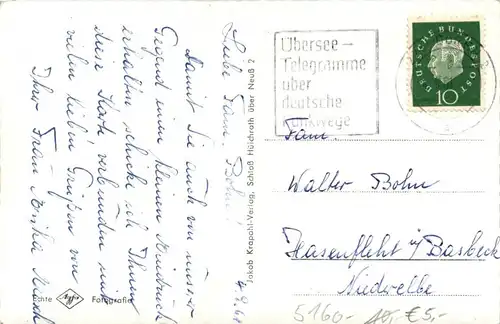 4.9.61
Liebe Fam. Bohn!
Damit Sie auch von unserer
Gegend einen kleinen Eindruck
erhalten schicke ich Ihnen
diese Karte verbunden mit
vielen lieben Grüßen von
Ihrer Frau
Echte Agfa Fotografie
Jakob Krapohl-Verlag, Schloß Hülchrath über Neuß 2
Übersee-
Telegramme
über
deutsche
Funkwege
DEUTSCHE BUNDESPOST
10
Fam.
Walter Bohn
Hasenfleht ü/ Basbeck
Niederelbe
5160-
€ 5,-